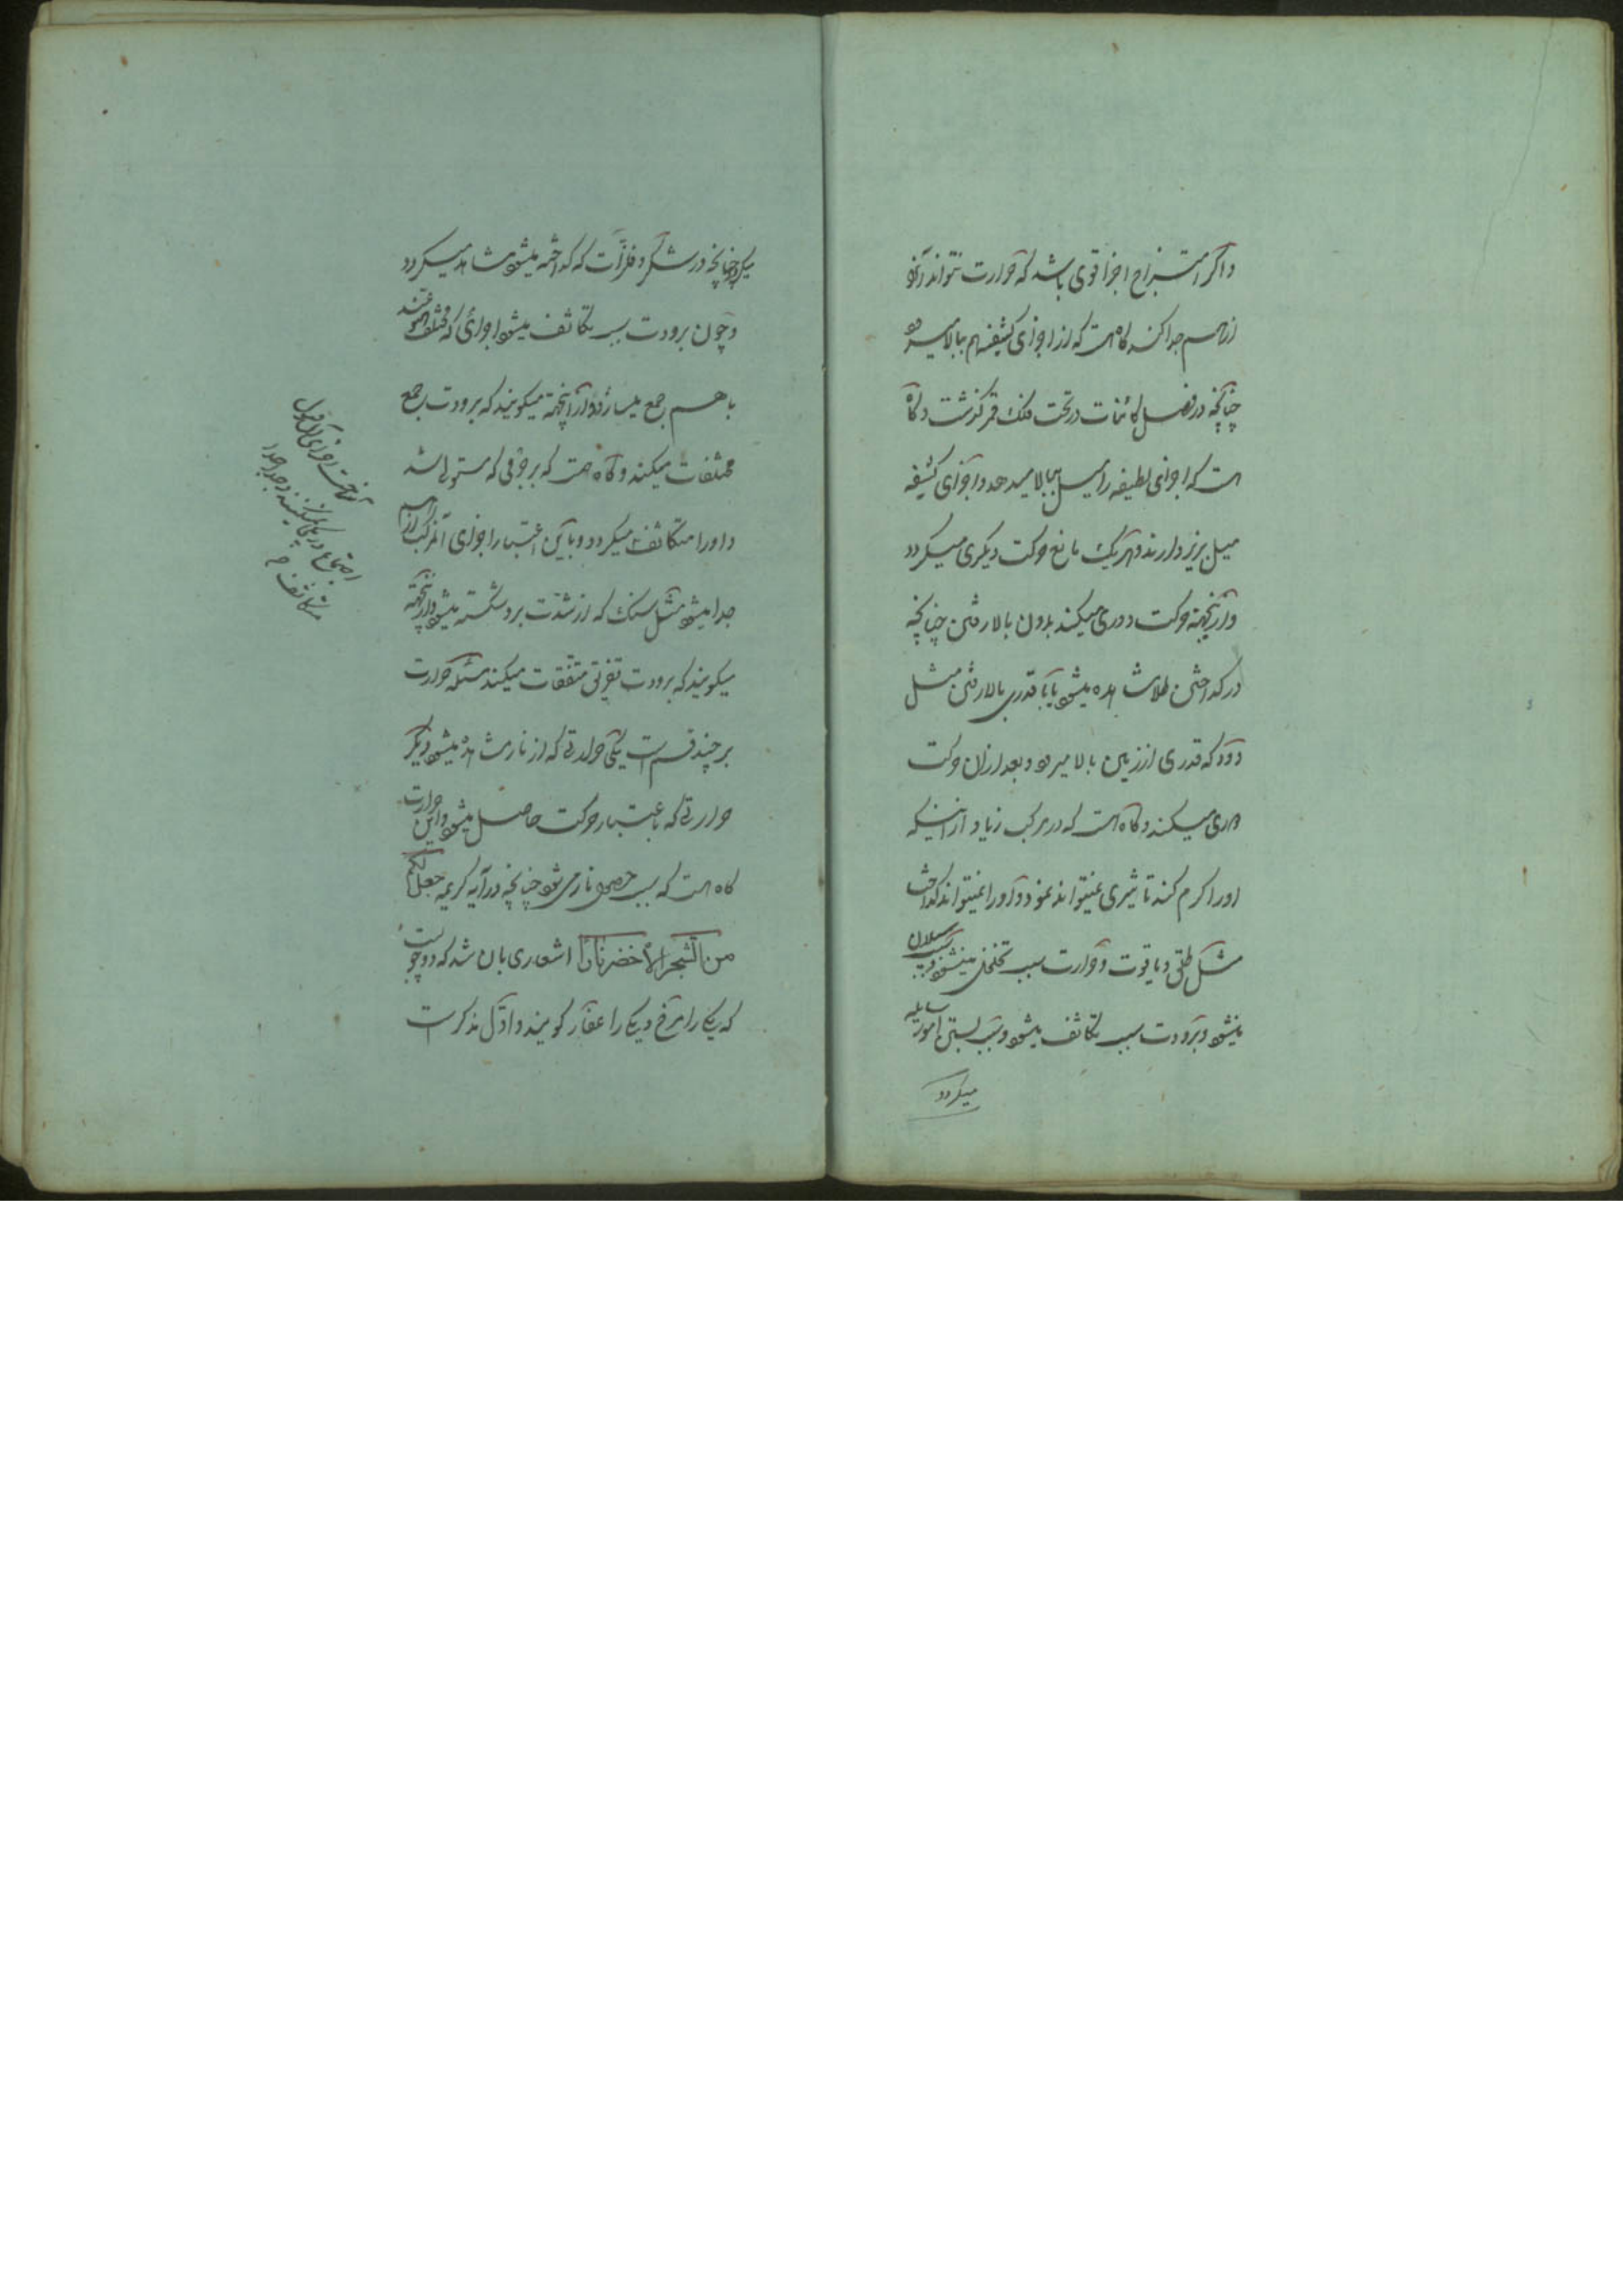 واگر امتزاج اجزا قوی باشد که حرارت نتواند آنرا
از هم جدا کند گاه هست که از اجزای کثیفه هم ببالا میرود
چنانچه در فصل کائنات در تحت فلک قمر گذشت و گاه
هست که اجزای لطیفه را میل ببالا میدهد و اجزای کثیفه
میل بزیر دارند و هر یک مانع حرکت دیگری میگردد
و از اینجهة حرکت دوری میکند بدون بالا رفتن چنانچه
در گداختن طلا مشاهده میشود یا با قدری بالا رفتن مثل
دود که قدری از زمین بالا میرود و بعد از آن حرکت
دوری میکند و گاه هست که در مرکب زیاد از اینکه
اورا گرم کند تاثیری نمیتواند نمود و اورا نمیتواند گداخت
مثل طلق و یاقوت و حرارت سبب تخلخل میشود و سبب سیلان
میشود و برودت سبب تکاثف میشود و سبب بستن امور سایله
میگردد
میگردد چنانچه در شکر و فلزات که گداخته میشود مشاهد میگردد
و چون برودت سبب تکاثف میشود اجزائی که مختلف
با هم جمع میسازد و از اینجهة میگویند که برودت جمع
مختلفات میکند و گاه هست که بر جزوی که مستولی شد
و اورا متکاثف میگردد و باین اعتبار اجزای آن مرکب از هم
جدا میشود مثل سنک که از شدت برد شکسته میشود و از اینجهة
میگویند که برودت تفریق متفقات میکند مسئله حرارت
بر چند قسم است یکی حرارتی که از نار مشاهده میشود و دیگر
حرارتی که باعتبار حرکت حاصل میشود و این حرارت
گاه هست که سبب حصول نار می شود چنانچه در آیه کریمه جعل لکم
من الشجر الأخضر نارا اشعاری بان شد که دو چوب است
که یکی را مرخ و یکی را عفار گویند و اول مذکر است